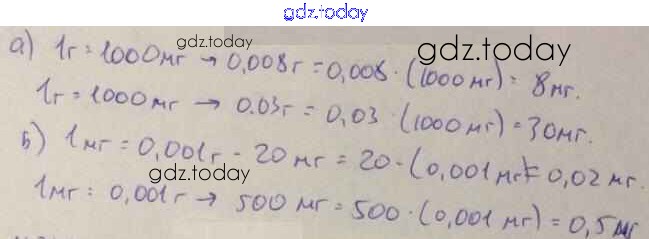 gdz.today
а) 1г = 1000мг → 0,008г = 0,008 · (1000 мг) = 8мг.
gdz.today
gdz.today
1г = 1000мг → 0.03г = 0,03 · (1000 мг) = 30мг.
б) 1мг = 0,001г - 20 мг = 20 · (0,001 мг) = 0,02 мг.
gdz.today
1мг = 0,001г → 500 мг = 500 · (0,001 мг) = 0,5мг
gdz.today